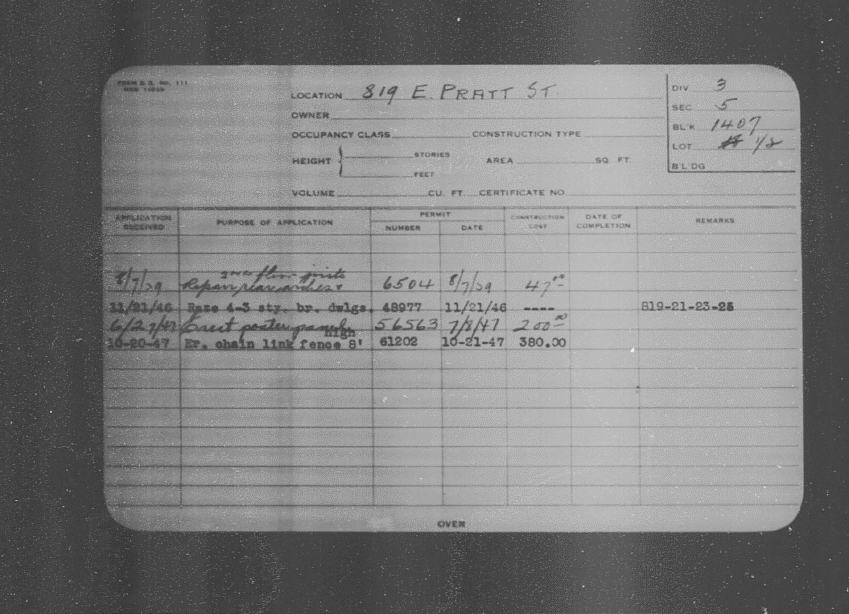 FORM B.B. No. 111
LOCATION 819 E. PRATT ST.
OWNER
OCCUPANCY CLASS CONSTRUCTION TYPE
HEIGHT { STORIES AREA SQ. FT.
FEET
VOLUME CU. FT. CERTIFICATE NO.
DIV 3
SEC 5
BL'K 1407
LOT 1/2
B'L'DG
APPLICATION RECEIVED PURPOSE OF APPLICATION PERMIT NUMBER DATE CONSTRUCTION COST DATE OF COMPLETION REMARKS
floor joists
8/7/29 Repair rear 6504 8/7/29 47.00
11/21/46 Raze 4-3 sty. br. dwlgs. 48977 11/21/46 ---- 819-21-23-25
6/27/47 Erect poster panel 56563 7/8/47 200.00
high
10-20-47 Er. chain link fence 8' 61202 10-21-47 380.00
OVER